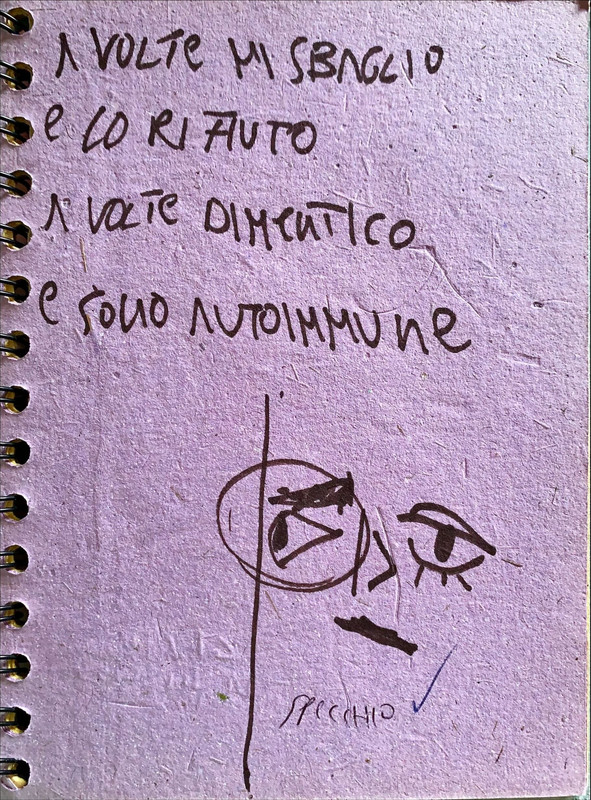 A VOLTE MI SBAGLIO
e LO RIFIUTO
A VOLTE DIMENTICO
e SONO AUTOIMMUNE
SPECCHIO